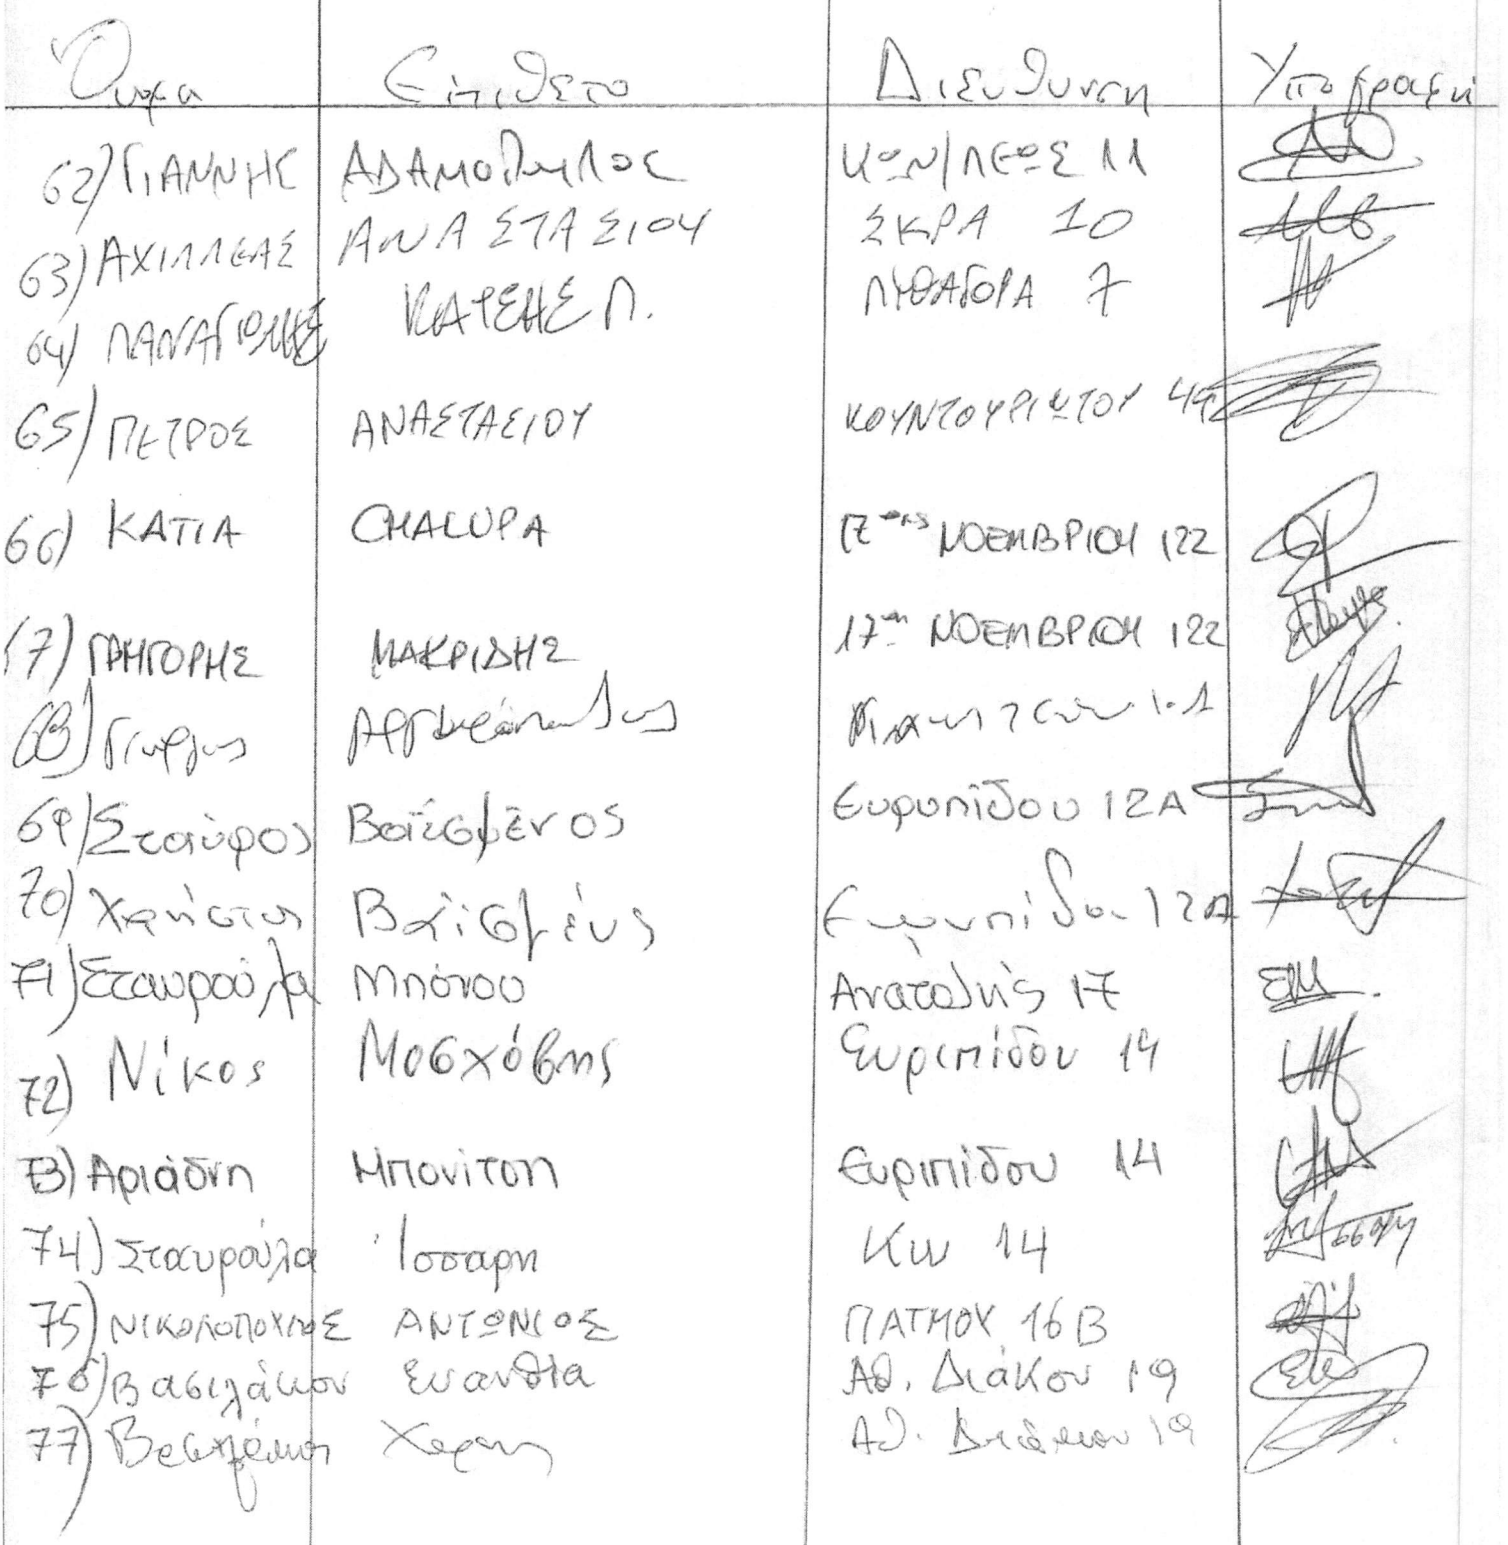 Όνομα Επίθετο Διεύθυνση Υπογραφή
62) ΓΙΑΝΝΗΣ ΑΔΑΜΟΠουλος ΚΩΝ/ΛΕΩΣ 11
63) ΑΧΙΛΛΕΑΣ ΑΝΑΣΤΑΣΙΟΥ ΣΚΡΑ 10
64) ΠΑΝΑΓΙΩΤΗΣ ΚΑΤΣΗΣ Π. ΠΥΘΑΓΟΡΑ 7
65) ΠΕΤΡΟΣ ΑΝΑΣΤΑΣΙΟΥ ΚΟΥΝΤΟΥΡΙΩΤΟΥ
66) ΚΑΤΙΑ CHALUPA 17ης ΝΟΕΜΒΡΙΟΥ 122
67) ΓΡΗΓΟΡΗΣ ΜΑΚΡΙΔΗΣ 17ης ΝΟΕΜΒΡΙΟΥ 122
68) Γιώργος Αργυρόπουλος
69) Σταύρος Βαϊσμένος Ευρυπίδου 12Α
70) Χρήστος Βαϊσμένος Ευρυπίδου 12Α
71) Σταυρούλα Μπόνου Ανατολής 17 ΣΜ.
72) Νίκος Μοσχόβης Ευριπίδου 14
73) Αριάδνη Μπονίτση Ευριπίδου 14
74) Σταυρούλα Ίσσαρη Κω 14
75) ΝΙΚΟΛΟΠΟΥΛΟΣ ΑΝΤΩΝΙΟΣ ΠΑΤΜΟΥ 16Β
76) Βασιλάκου Ευανθία Αθ. Διάκου 19
77) Αθ. Διάκου 19